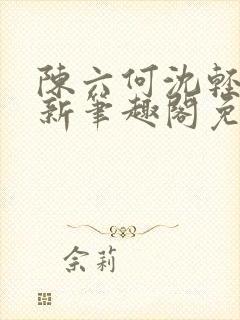 陳六何沈輕
新筆趣閣免
余莉